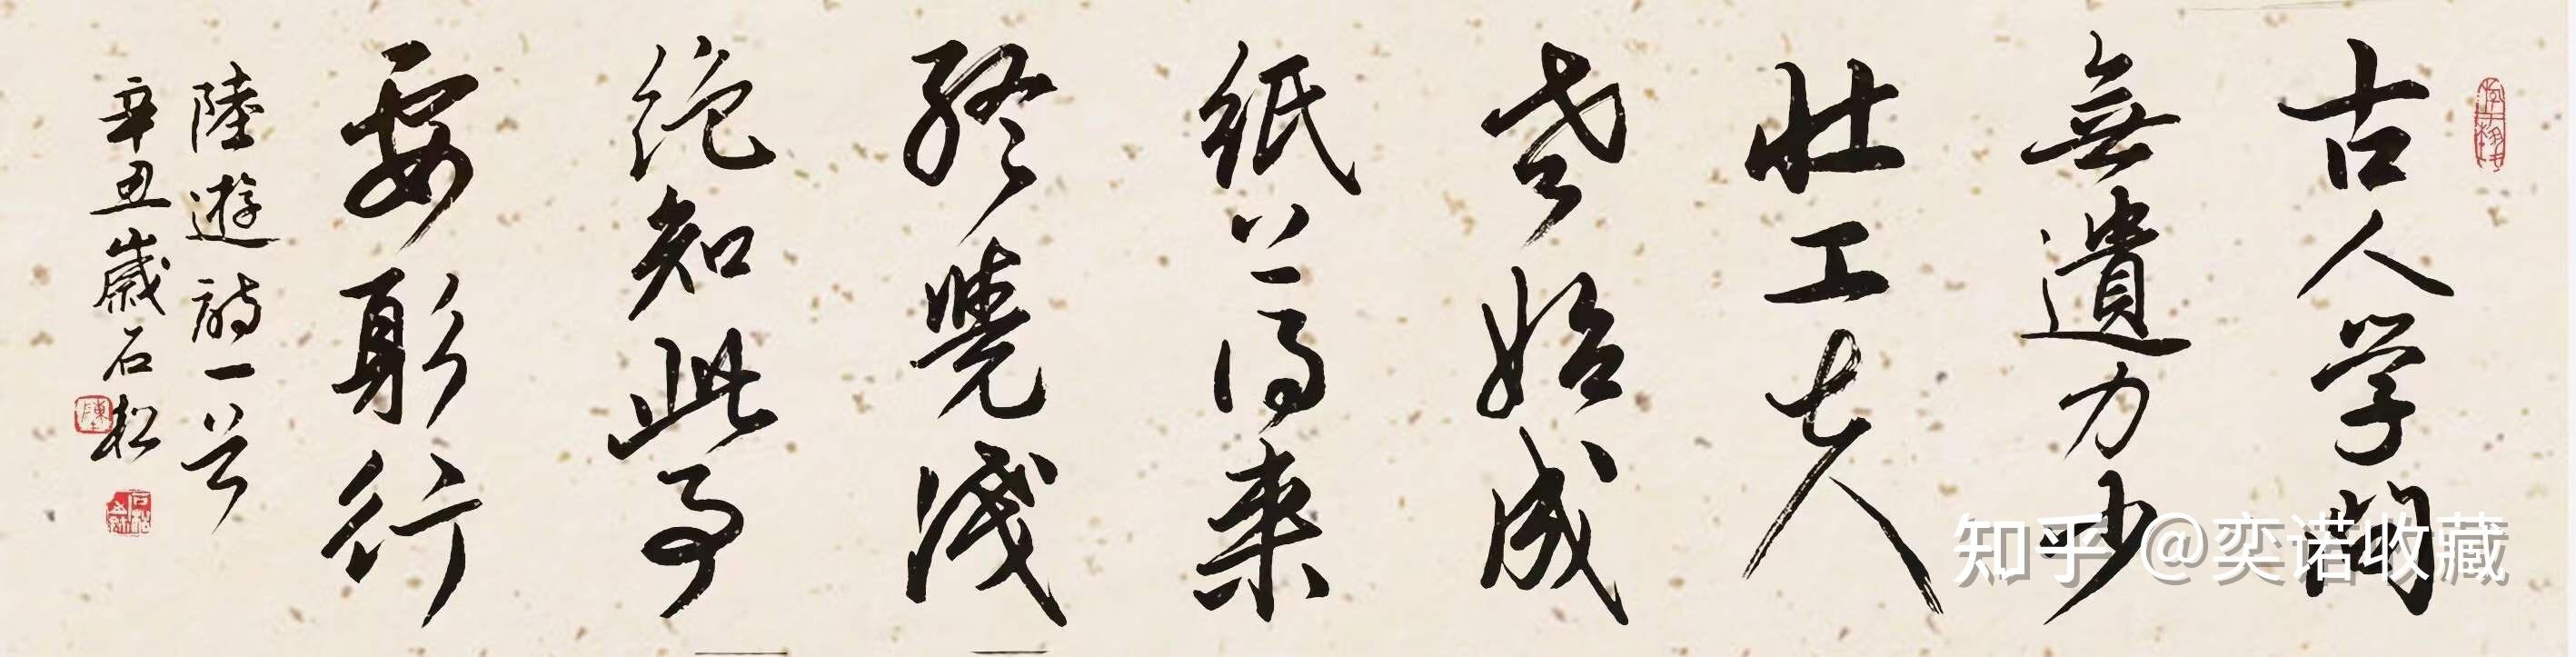 古人学問
無遺力少
壮工夫
老始成
紙上得来
終覺淺
絶知此事
要躬行
陸遊詩一首
辛丑歲石松
知乎 @奕诺收藏